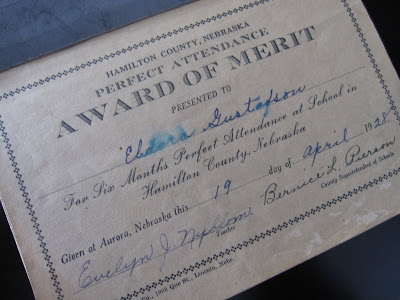 HAMILTON COUNTY, NEBRASKA
PERFECT ATTENDANCE
AWARD OF MERIT
PRESENTED TO
Gustafson
For Six Months Perfect Attendance at School in
Hamilton County, Nebraska
Given at Aurora, Nebraska this 19 day of April 1928
Evelyn J. Nyblom Bernice L. Pierson
Teacher County Superintendent of Schools
Co., Que St., Lincoln, Nebr.